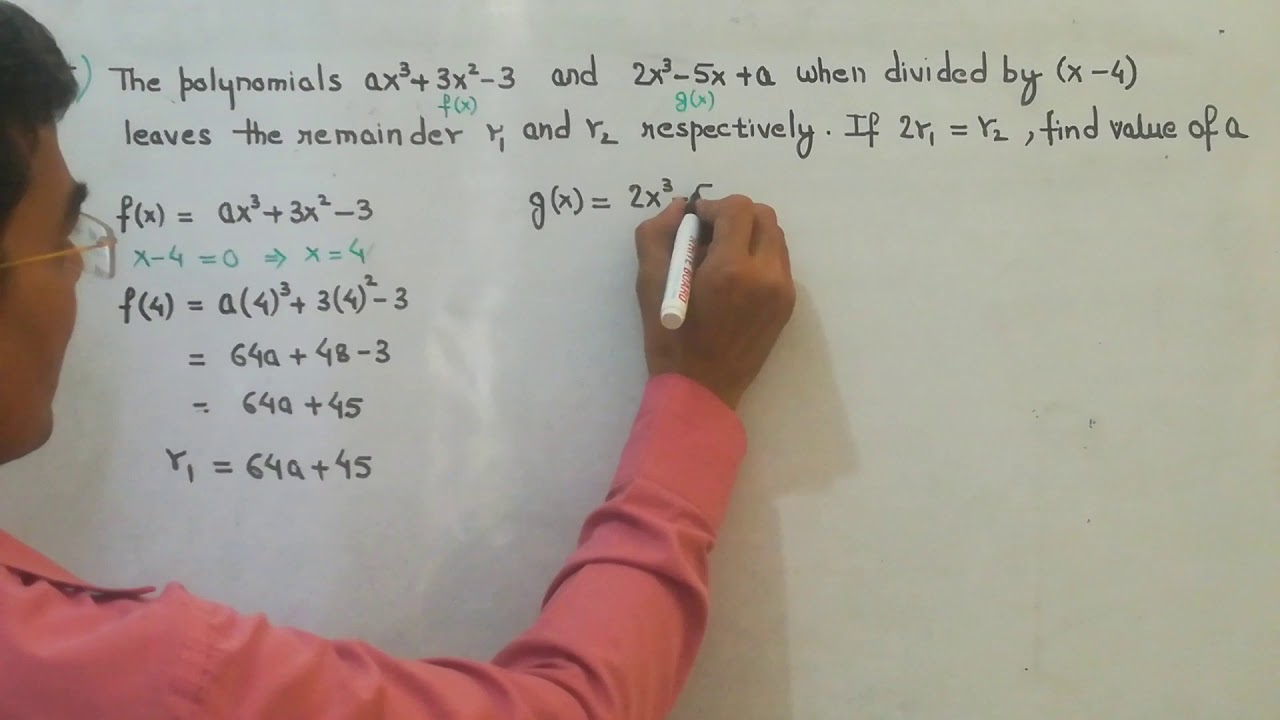 ) The polynomials ax³+3x²-3 and 2x³-5x+a when divided by (x-4)
f(x) g(x)
leaves the remainder r₁ and r₂ respectively. If 2r₁ = r₂, find value of a
f(x) = ax³+3x²-3
g(x) = 2x³-5
x-4 =0 ⇒ x=4
f(4) = a(4)³+ 3(4)²-3
= 64a+48-3
= 64a+45
r₁ = 64a+45
WHITE BOARD